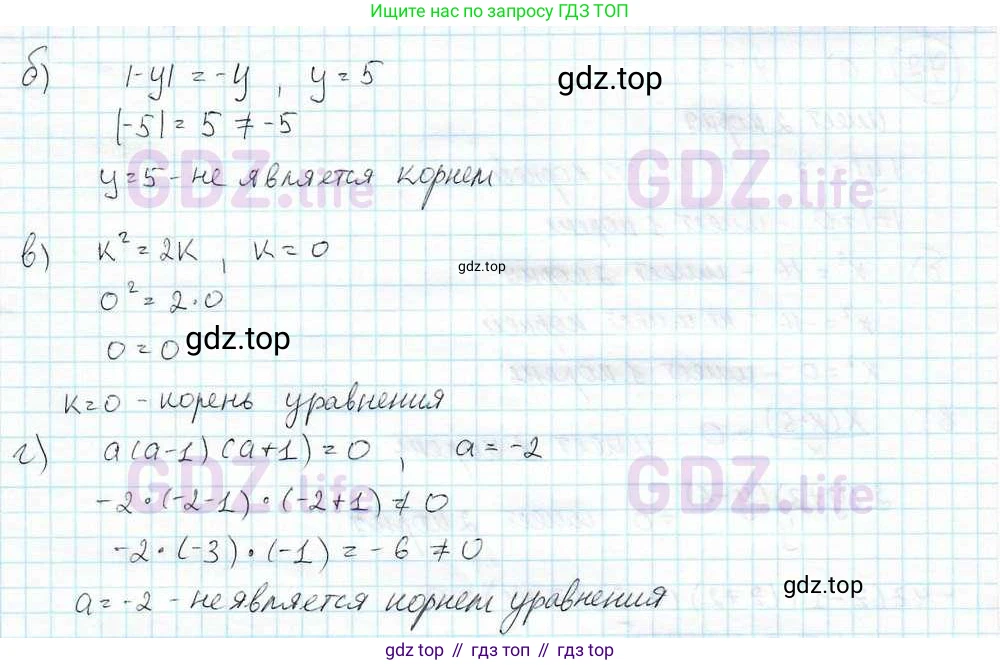 Ищите нас по запросу ГДЗ ТОП
б) |-y| = -y , y = 5
gdz.top
|-5| = 5 ≠ -5
GDZ.life GDZ.life
y=5 - не является корнем
в) k² = 2k , k = 0
gdz.top
0² = 2·0
0 = 0
gdz.top
k=0 - корень уравнения
г) a(a-1)(a+1) = 0 , a = -2
GDZ.life GDZ.life
-2·(-2-1)·(-2+1) ≠ 0
-2·(-3)·(-1) = -6 ≠ 0
gdz.top
a = -2 - не является корнем уравнения
gdz.top // гдз топ // gdz.top